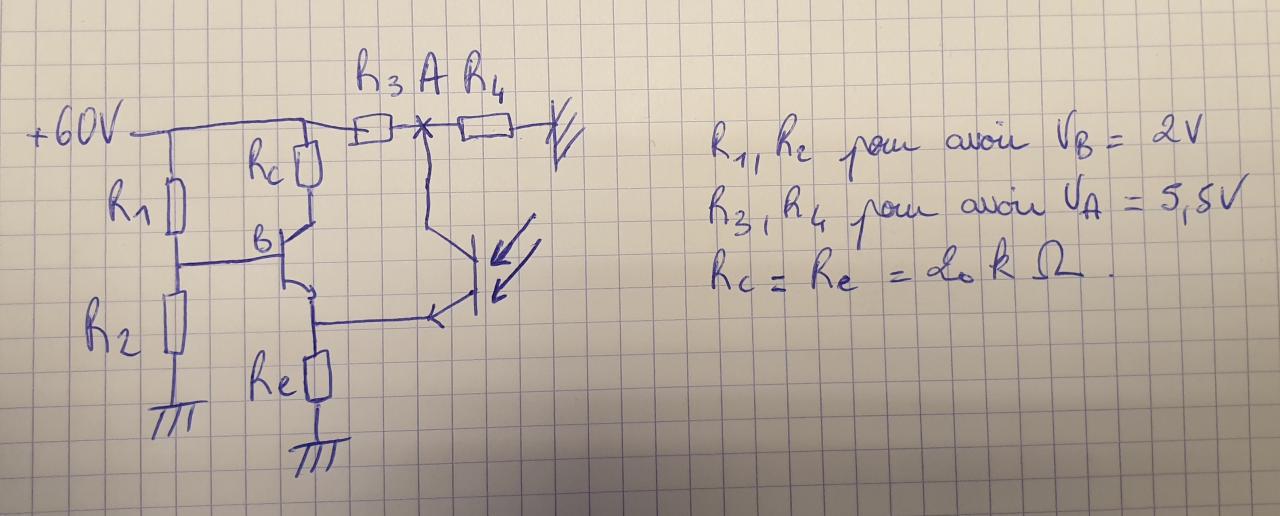 R3 A R4
+60V
Rc
R1
B
R2
Re
R1, R2 pour avoir VB = 2V
R3, R4 pour avoir VA = 5,5V
Rc = Re = 20 k Ω.